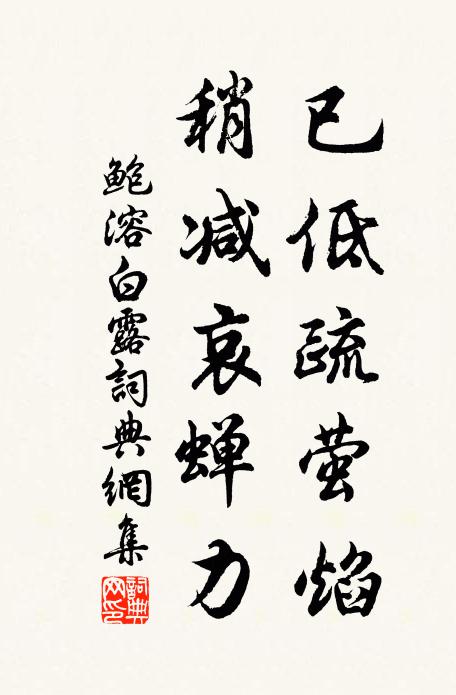 已低疏萤焰
稍减哀蝉力
鲍溶白露詞典網集
詞典网印